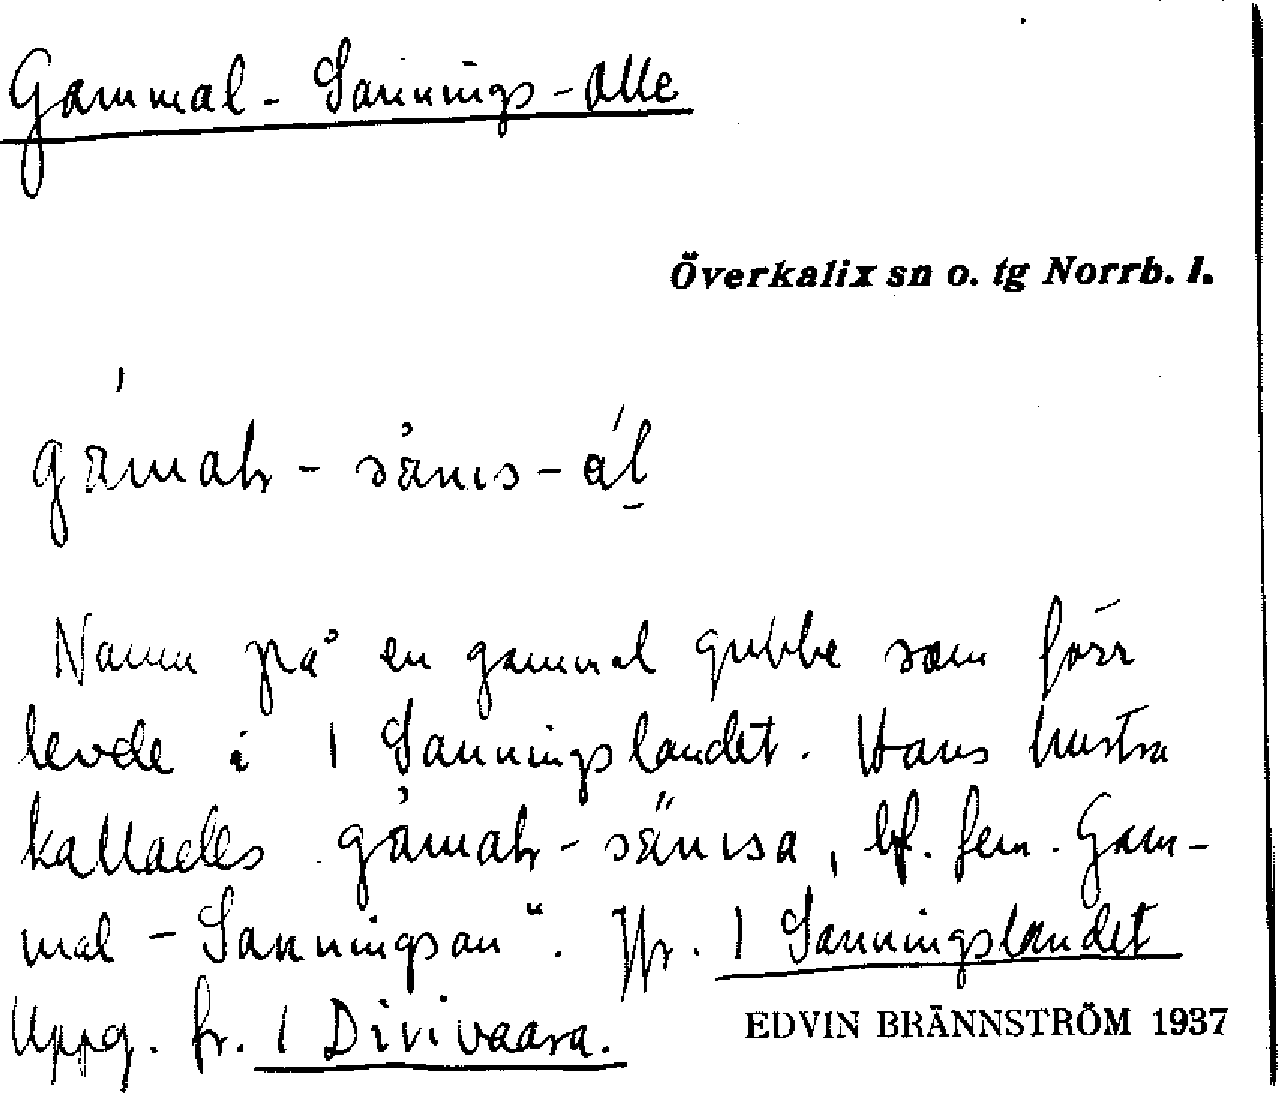 Gammal-Sannings-Olle
Överkalix sn o. tg Norrb. l.
gämaḷ - sänıs - ål
Namn på en gammal gubbe som förr
levde i 1 Sanningslandet. Hans hustru
kallades gämaḷ - sänısa, bf. fem. Gam-
mal - Sanningsan". Jfr. 1 Sanningslandet
Uppg. fr. 1 Divivaara.
EDVIN BRÄNNSTRÖM 1937